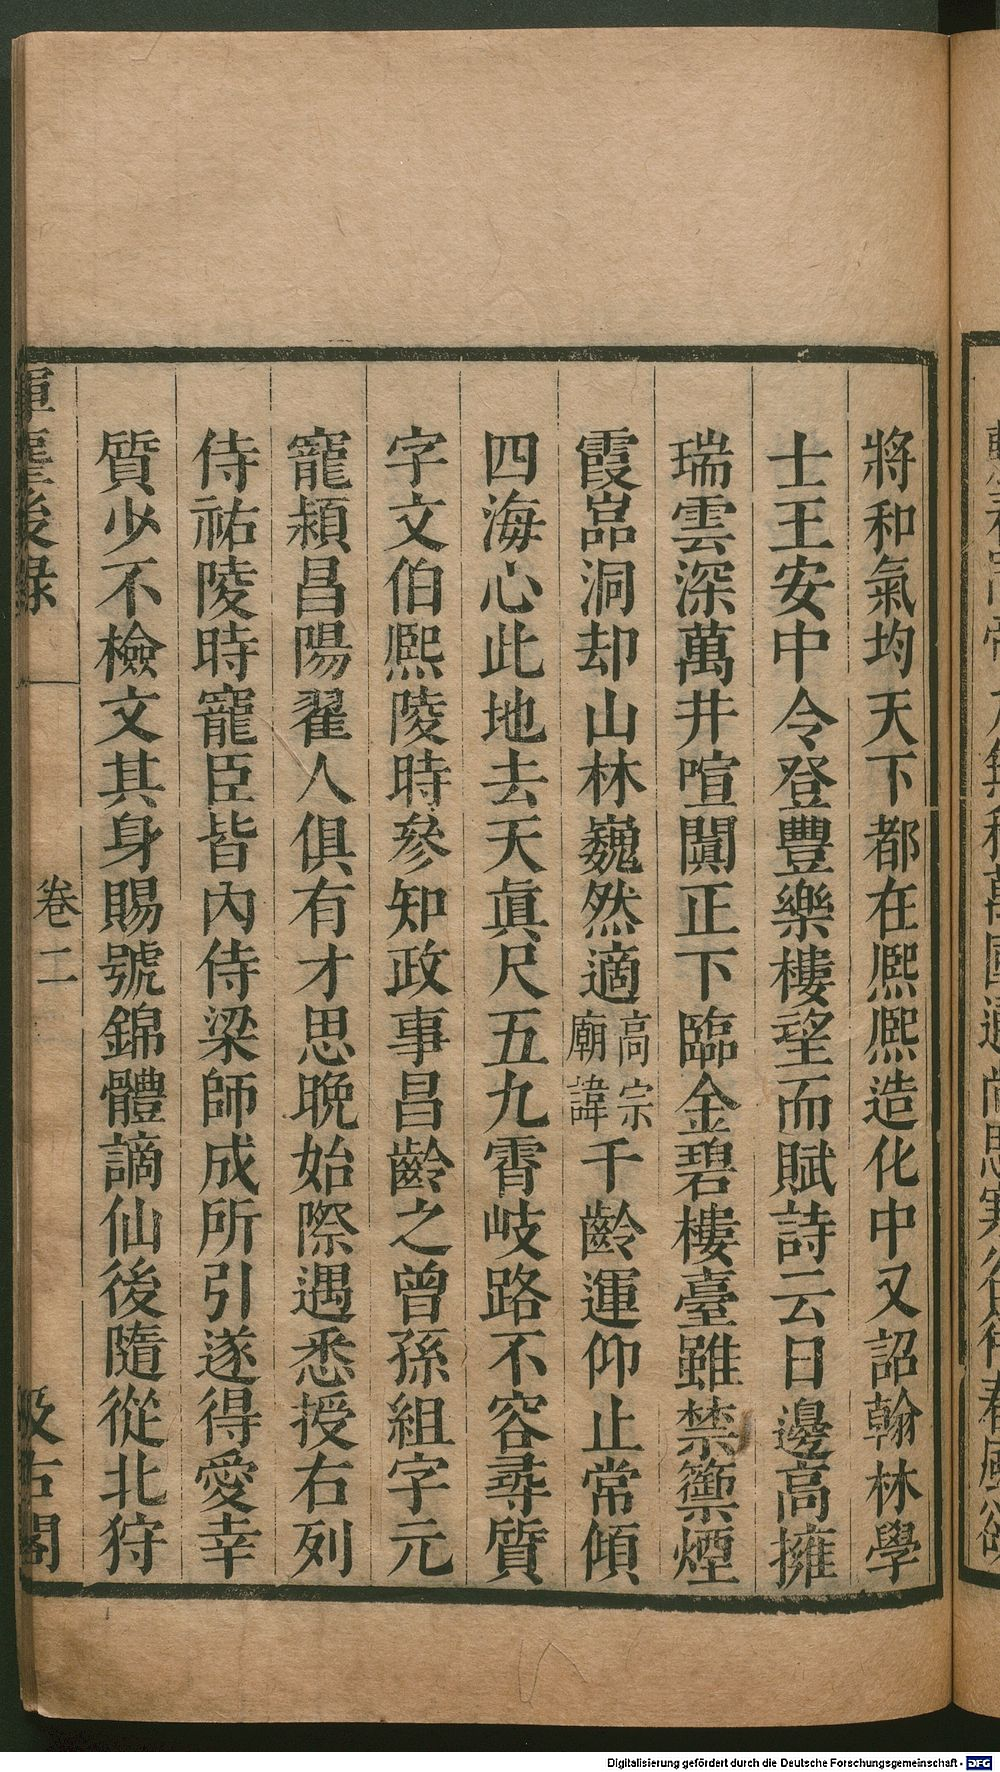 將和氣均天下都在熈熈造化中又詔翰林學
士王安中令登豐樂樓望而賦詩云日邊高擁
瑞雲深萬井喧闐正下臨金碧樓臺雖禁籞煙
霞嵓洞却山林巍然適高宗廟諱千齡運仰止常傾
四海心此地去天眞尺五九霄岐路不容尋質
字文伯熈陵時參知政事昌齡之曾孫組字元
寵潁昌陽翟人俱有才思晚始際遇悉授右列
侍祐陵時寵臣皆內侍梁師成所引遂得愛幸
質少不檢文其身賜號錦體謫仙後隨從北狩
揮麈後録
卷二
汲古閣
Digitalisierung gefördert durch die Deutsche Forschungsgemeinschaft - DFG